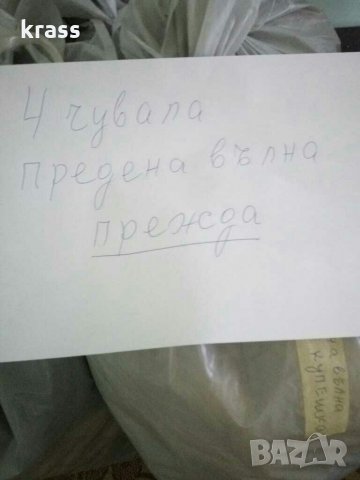 krass
4 чувала
предена вълна
прежда
вълна
BAZAR